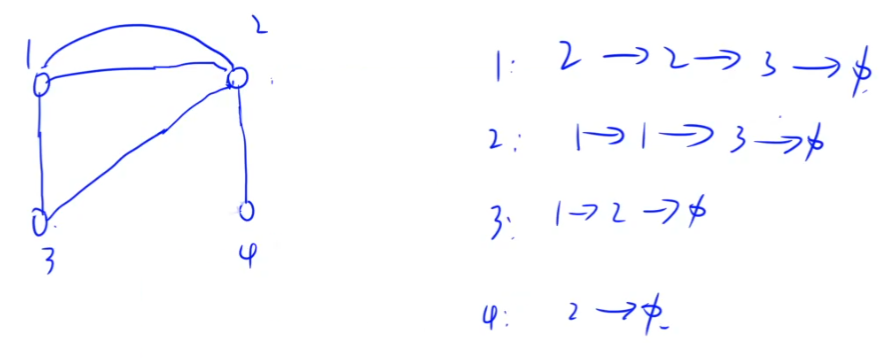 1 2
3 4
1: 2 → 2 → 3 → φ
2: 1 → 1 → 3 → φ
3: 1 → 2 → φ
4: 2 → φ